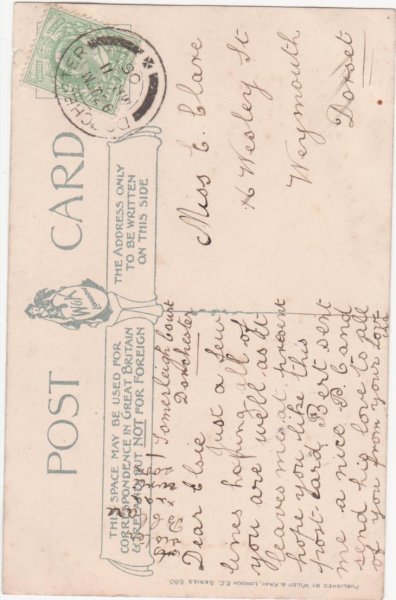 POST CARD
THIS SPACE MAY BE USED FOR
CORRESPONDENCE IN GREAT BRITAIN
NOT FOR FOREIGN
THE ADDRESS ONLY
TO BE WRITTEN
ON THIS SIDE
W&K
London
DORCHESTER
Miss E. Clare
Wesley St
Weymouth
Dorset
Somerleigh Court
Dorchester
Dear Elsie Just a few
lines hoping all of
you are well as it
leaves me at present
hope you like this
post-card Bert sent
me a nice P. Card
send his love to all
of you from your
PUBLISHED BY WILDT & KRAY, LONDON E.C. SERIES